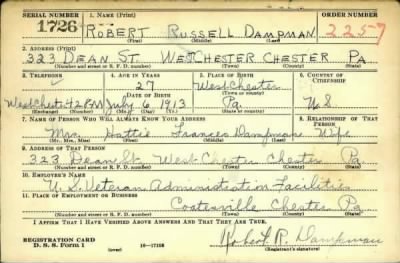 SERIAL NUMBER 1. NAME (Print) ORDER NUMBER
1726 ROBERT RUSSELL DAMPMAN 2257
(First) (Middle) (Last)
2. ADDRESS (Print)
323 DEAN ST. WEST CHESTER CHESTER PA
(Number and street or R. F. D. number) (Town) (County) (State)
3. TELEPHONE 4. AGE IN YEARS 5. PLACE OF BIRTH 6. COUNTRY OF CITIZENSHIP
27 West Chester
DATE OF BIRTH (Town or county)
West Chester July 6, 1913 Pa. U S
(Exchange) (Number) (Mo.) (Day) (Yr.) (State or country)
7. NAME OF PERSON WHO WILL ALWAYS KNOW YOUR ADDRESS 8. RELATIONSHIP OF THAT PERSON
Mrs. Hattie Frances Dampman Wife
(Mr., Mrs., Miss) (First) (Middle) (Last)
9. ADDRESS OF THAT PERSON
323 Dean St West Chester Chester Pa
(Number and street or R. F. D. number) (Town) (County) (State)
10. EMPLOYER'S NAME
U. S. Veteran Administration Facilities
11. PLACE OF EMPLOYMENT OR BUSINESS
Coatesville Chester Pa
(Number and street or R. F. D. number) (Town) (County) (State)
I AFFIRM THAT I HAVE VERIFIED ABOVE ANSWERS AND THAT THEY ARE TRUE.
REGISTRATION CARD Robert R. Dampman
D. S. S. Form 1 (over) 16—17105 (Registrant's signature)